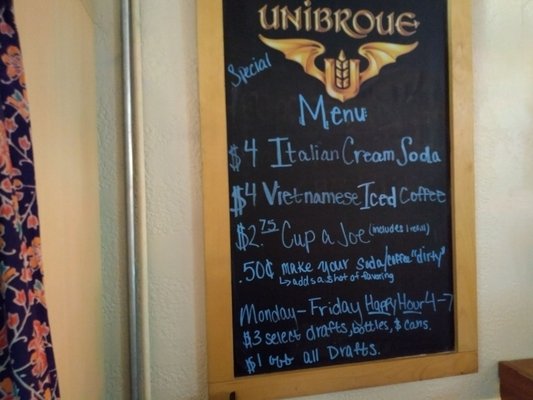 UNIBROUE
Special
Menu
$4 Italian Cream Soda
$4 Vietnamese Iced Coffee
$2.75 Cup a Joe (includes 1 refill)
.50¢ make your soda/coffee "dirty"
↳ adds a shot of flavoring
Monday-Friday Happy Hour 4-7
$3 select drafts, bottles, & cans.
$1 off all Drafts.